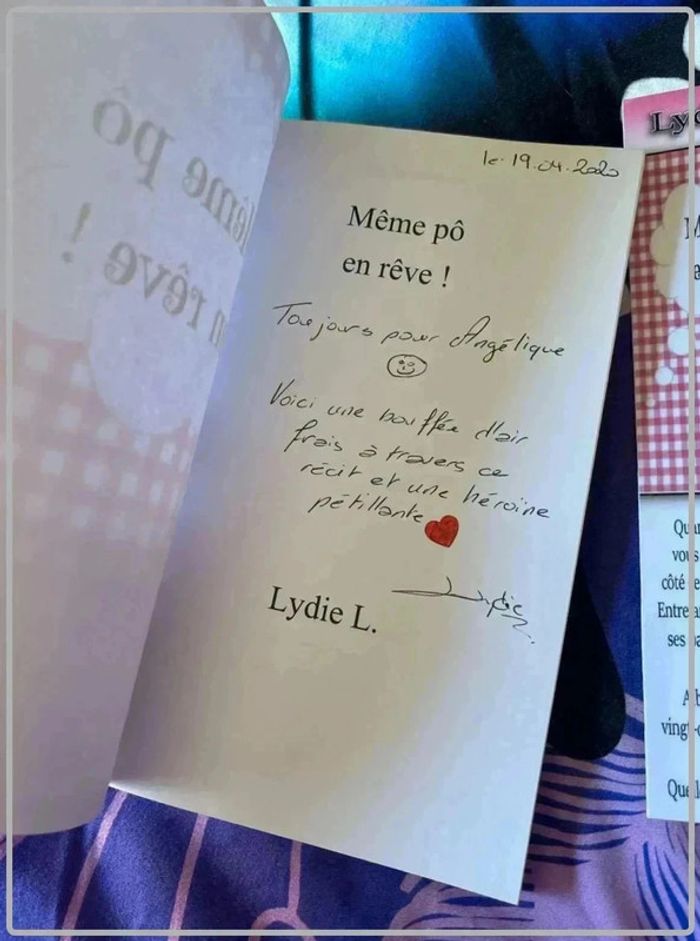 le 19.04.2020
Même pô
en rêve !
Toujours pour Angélique
Voici une bouffée d'air
frais à travers ce
récit et une héroïne
pétillante
Lydie
Lydie L.
Qu
vous
côté
Entre
ses
vingt